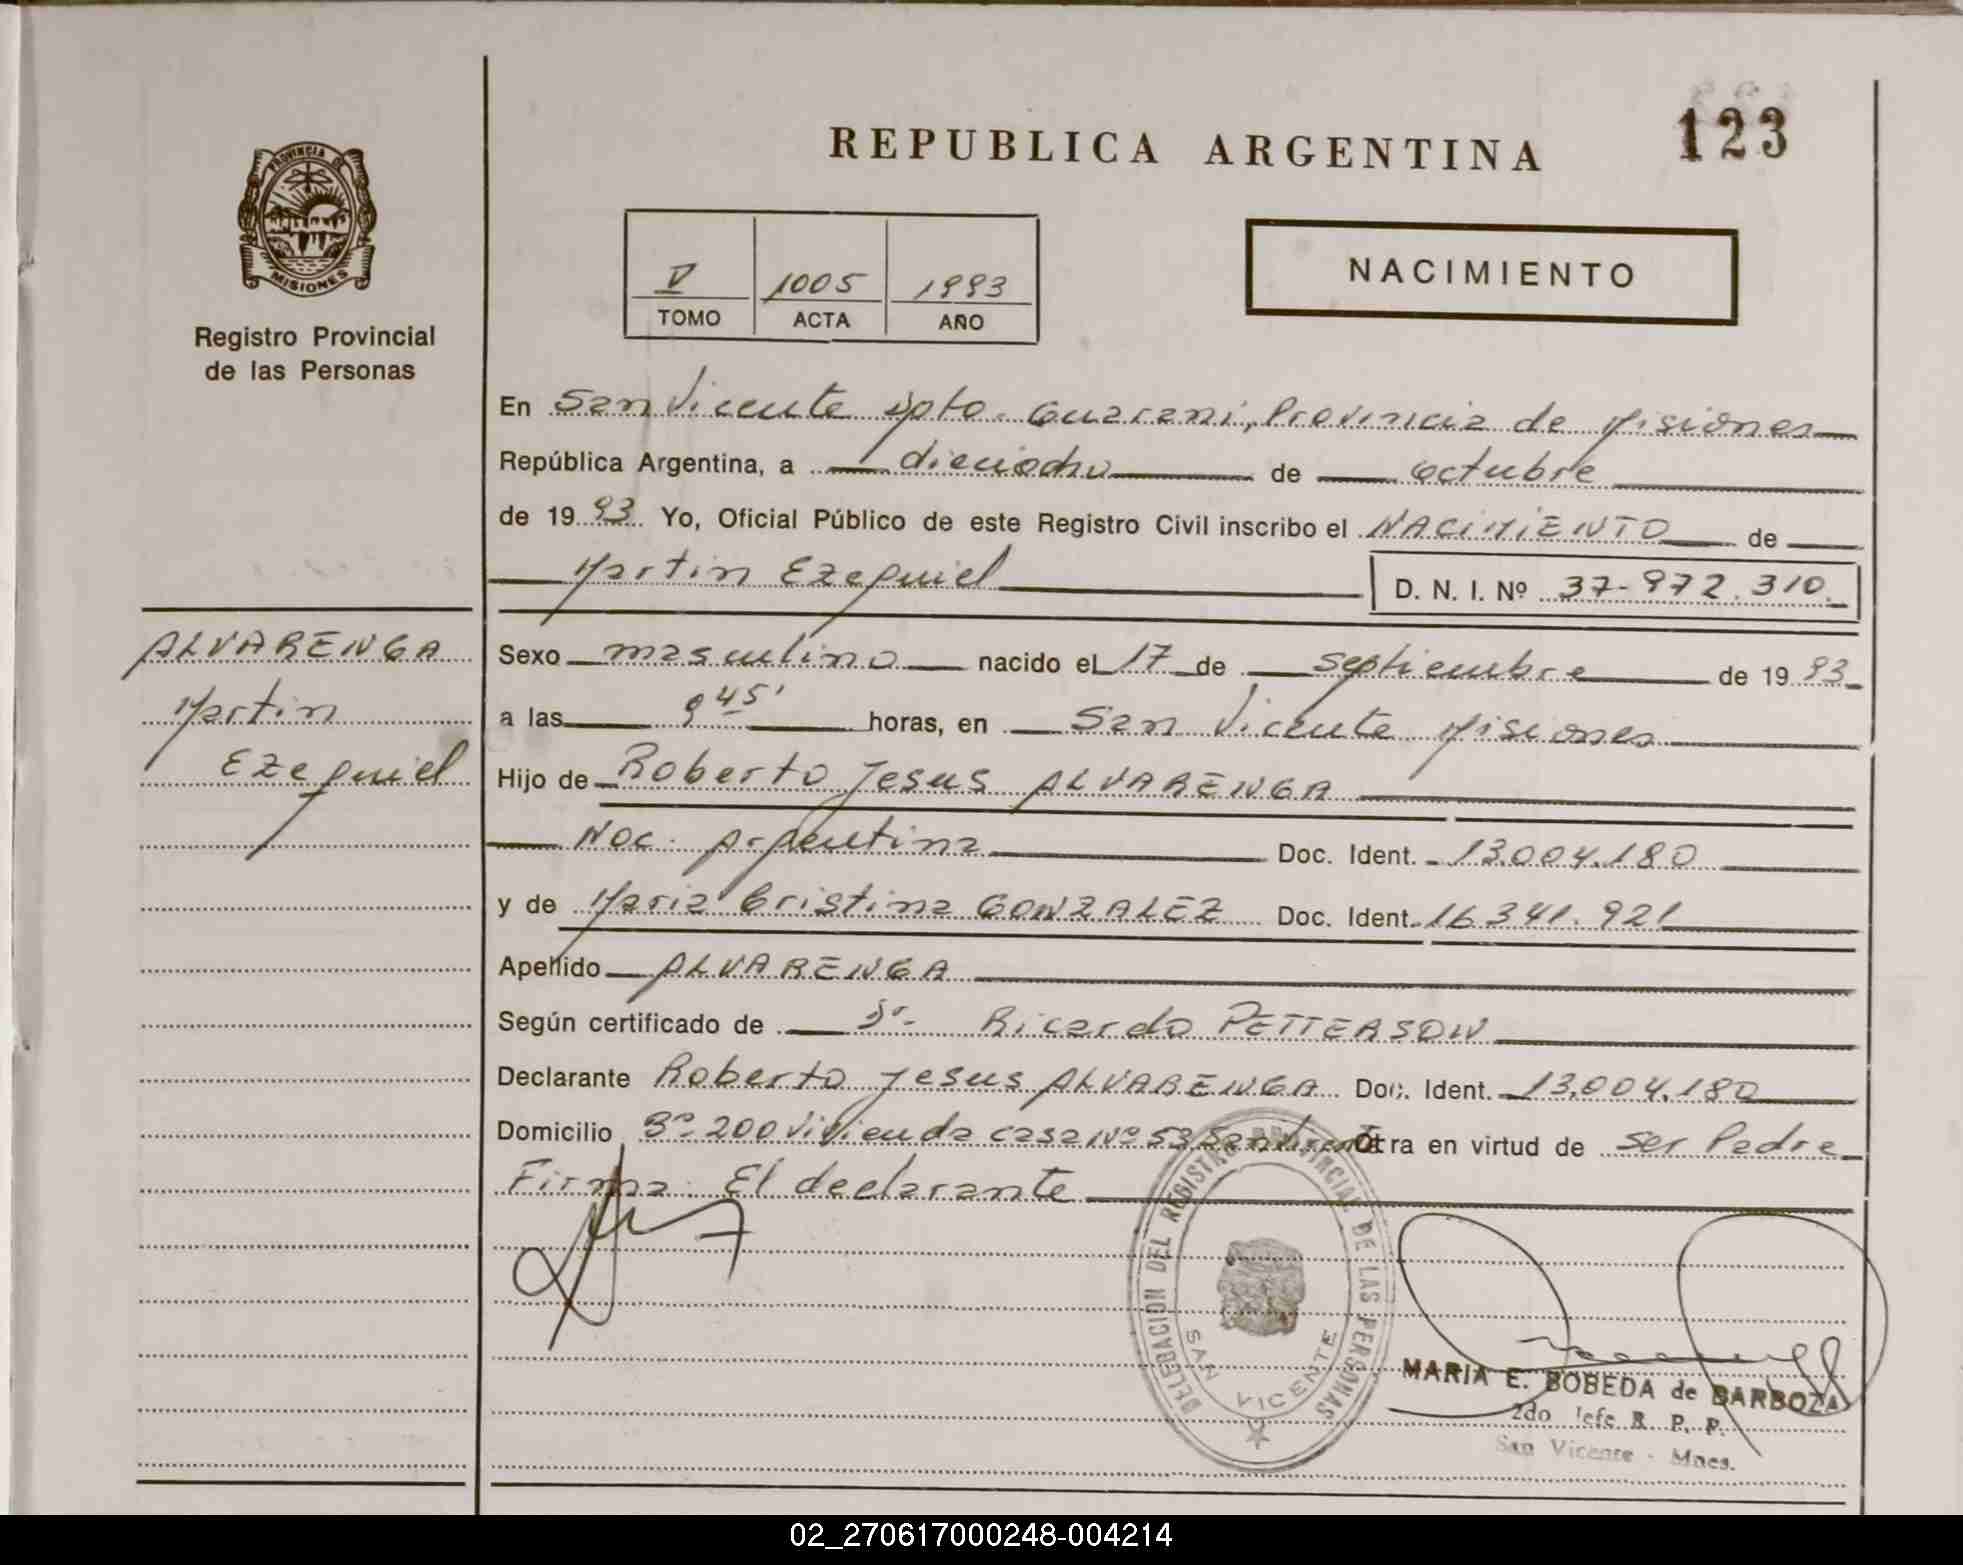 PROVINCIA DE
MISIONES
Registro Provincial
de las Personas
ALVARENGA
Martin
Ezequiel
REPUBLICA ARGENTINA
123
V 1005 1993
TOMO ACTA AÑO
NACIMIENTO
En San Vicente Dpto. Guarani, Provincia de Misiones
República Argentina, a dieciocho de octubre
de 1993. Yo, Oficial Público de este Registro Civil inscribo el NACIMIENTO de
Martin Ezequiel D. N. I. Nº 37-972.310.
Sexo masculino nacido el 17 de septiembre de 1993
a las 9 45' horas, en San Vicente Misiones
Hijo de Roberto Jesus ALVARENGA
Nac. Argentina Doc. Ident. 13.004.180
y de Maria Cristina GONZALEZ Doc. Ident. 16.341.921
Apellido ALVARENGA
Según certificado de Dr. Ricardo PETTERSON
Declarante Roberto Jesus ALVARENGA Doc. Ident. 13.004.180
Domicilio Bº 200 Vivienda casa Nº 53 San Vicente Obra en virtud de ser Padre
Firma: El declarante
DELEGACION DEL REGISTRO PROVINCIAL DE LAS PERSONAS
SAN VICENTE
MARIA E. BOBEDA de BARBOZA
2do Jefe R. P. P.
San Vicente - Mnes.
02_270617000248-004214